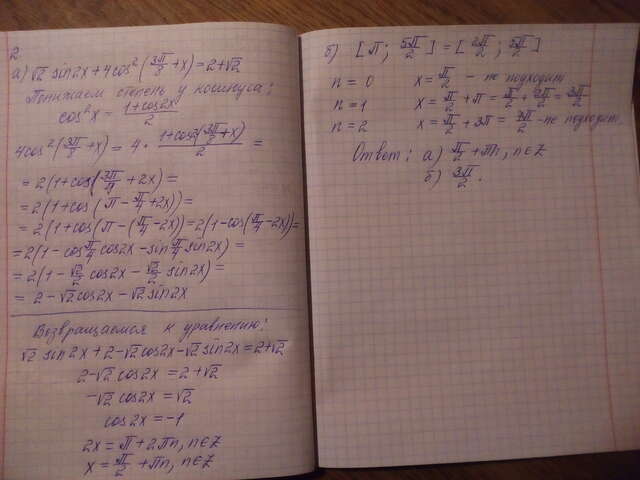 2
а) √2 sin2x + 4cos²(3π/8 + x) = 2+√2
Понижаем степень у косинуса:
cos²x = (1+cos2x)/2
4cos²(3π/8 + x) = 4 · (1+cos2(3π/8 + x))/2 =
= 2(1+cos(3π/4 + 2x)) =
= 2(1+cos(π - π/4 + 2x)) =
= 2(1+cos(π - (π/4 - 2x)) = 2(1-cos(π/4 - 2x)) =
= 2(1 - cos π/4 cos2x - sin π/4 sin2x) =
= 2(1 - √2/2 cos2x - √2/2 sin2x) =
= 2 - √2 cos2x - √2 sin2x
Возвращаемся к уравнению:
√2 sin2x + 2 - √2 cos2x - √2 sin2x = 2+√2
2 - √2 cos2x = 2 + √2
-√2 cos2x = √2
cos2x = -1
2x = π + 2πn, n∈Z
x = π/2 + πn, n∈Z
б) [π; 5π/2] = [2π/2; 5π/2]
n = 0 x = π/2 - не подходит
n = 1 x = π/2 + π = π/2 + 2π/2 = 3π/2
n = 2 x = π/2 + 3π = 7π/2 - не подходит
Ответ: а) π/2 + πn, n∈Z
б) 3π/2.